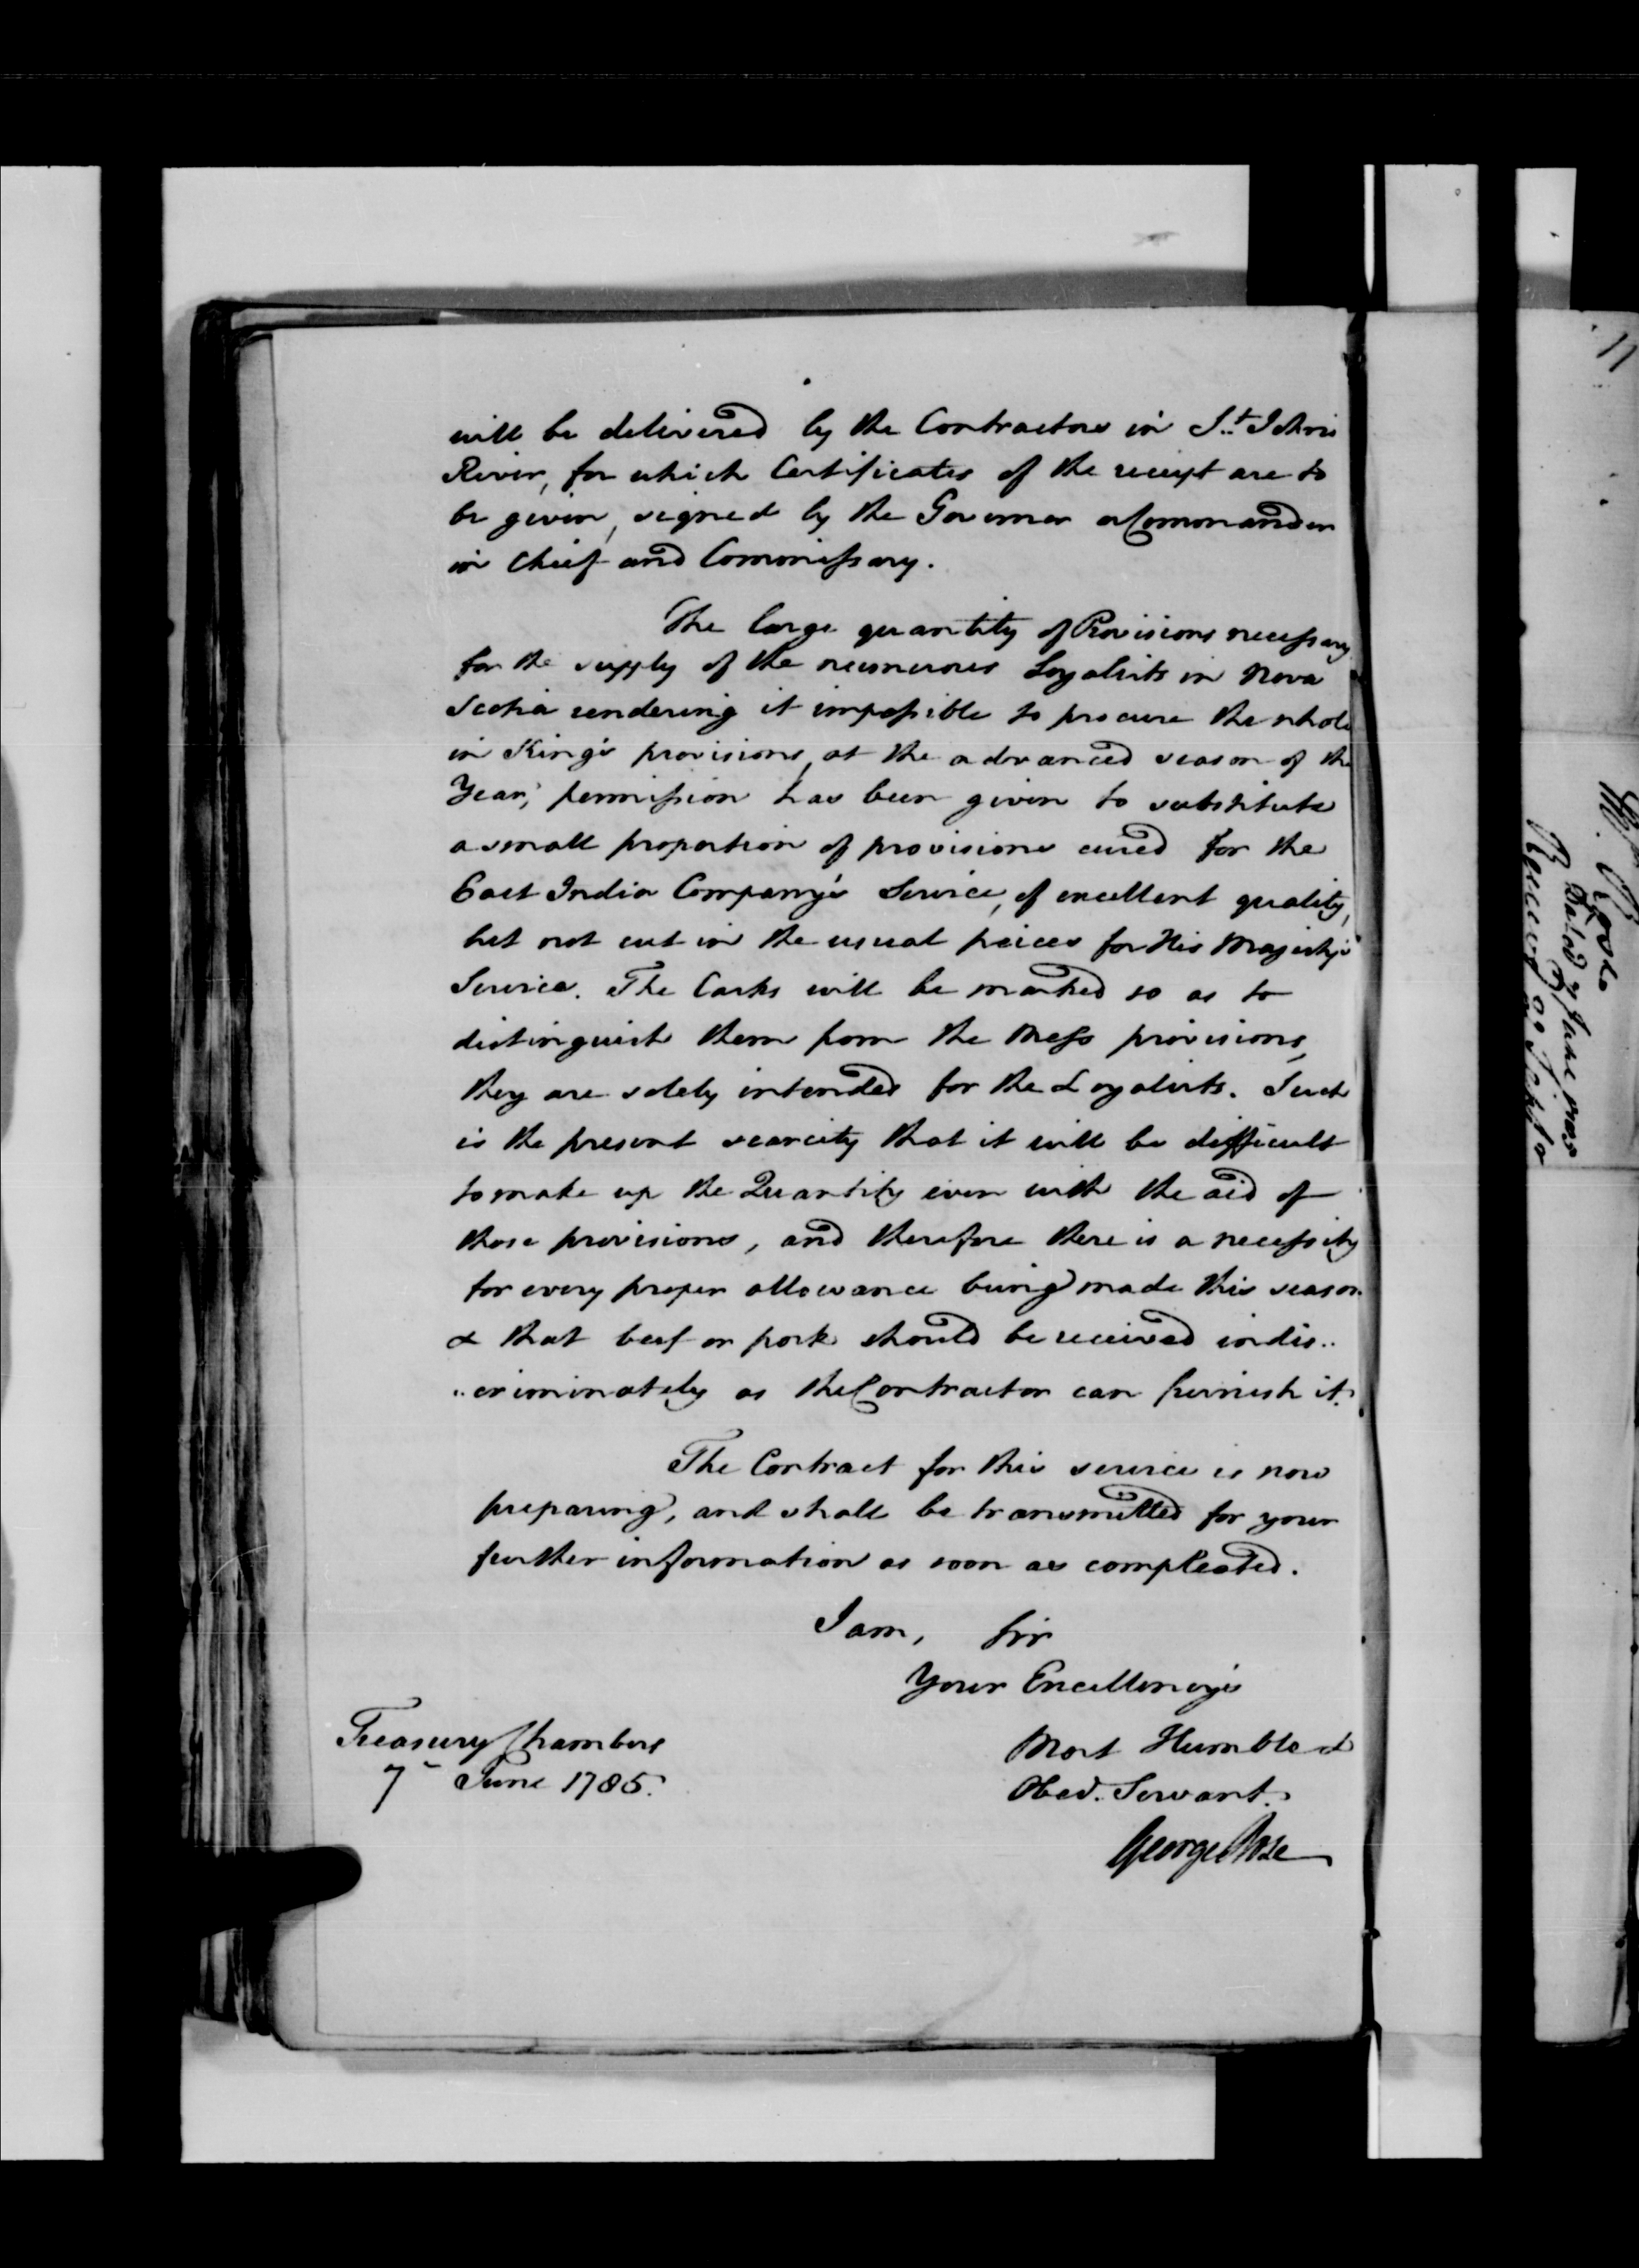 will be delivered by the Contractors in S.t John's
River, for which Certificates of the receipt are to
be given, signed by the Governor or Commander
in Chief and Commissary.
The large quantity of Provisions necessary
for the supply of the numerous Loyalists in Nova
Scotia rendering it impossible to procure the whole
in King's provisions, at the advanced season of the
Year, permission has been given to substitute
a small proportion of provisions cured for the
East India Company's Service, of excellent quality,
but not cut in the usual peices for His Majesty's
Service. The Casks will be marked so as to
distinguish them from the Mess provisions,
they are solely intended for the Loyalists. Such
is the present scarcity that it will be difficult
to make up the Quantity even with the aid of
those provisions, and therefore there is a necessity
for every proper allowance being made this season
& that beef or pork should be received indis..
..criminately as the Contractor can furnish it.
The Contract for this service is now
preparing, and shall be transmitted for your
further information as soon as compleated.
I am, Sir
Your Excellency's
Most Humble &
Obed. Servant.
George Rose
Treasury Chambers
7 June 1785.
Dated 7 June 1785
Received